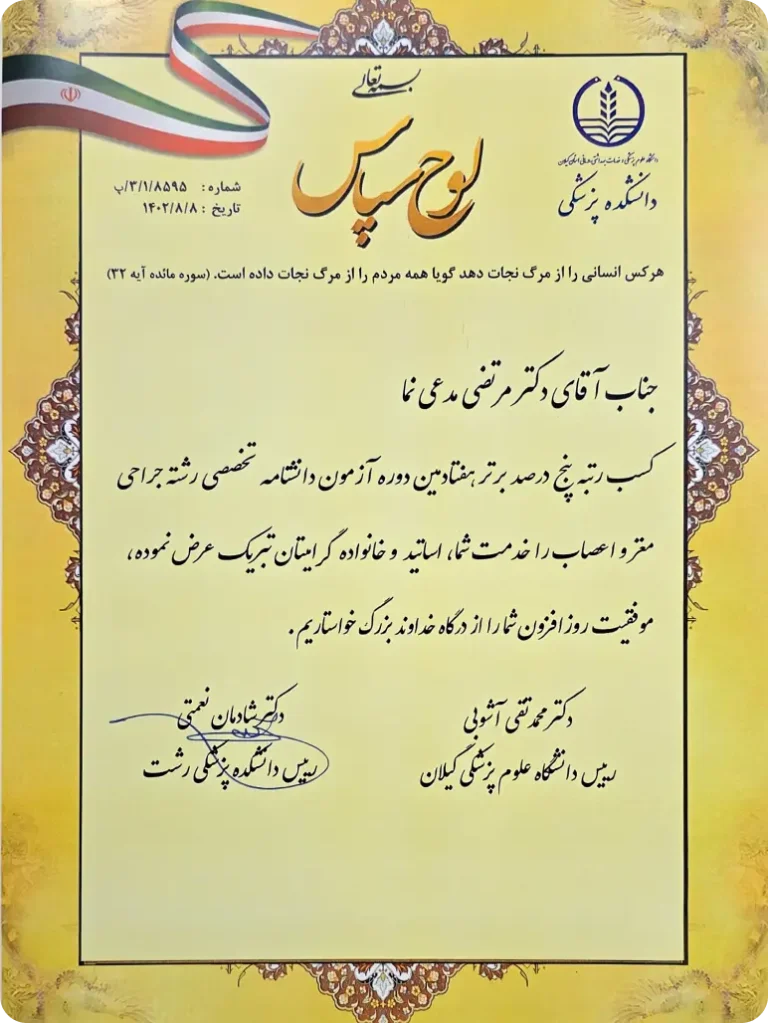 بسمه تعالی
لوح سپاس
دانشگاه علوم پزشکی و خدمات بهداشتی درمانی استان گیلان
دانشکده پزشکی
شماره: ۳/۱/۸۵۹۵/پ
تاریخ: ۱۴۰۲/۸/۸
هرکس انسانی را از مرگ نجات دهد گویا همه مردم را از مرگ نجات داده است. (سوره مائده آیه ۳۲)
جناب آقای دکتر مرتضی مدعی نما
کسب رتبه پنج درصد برتر هفتادمین دوره آزمون دانشنامه تخصصی رشته جراحی
مغز و اعصاب را خدمت شما، اساتید و خانواده گرامیتان تبریک عرض نموده،
موفقیت روزافزون شما را از درگاه خداوند بزرگ خواستاریم.
دکتر محمدتقی آشوبی
رییس دانشگاه علوم پزشکی گیلان
دکتر شادمان نعمتی
رییس دانشکده پزشکی رشت